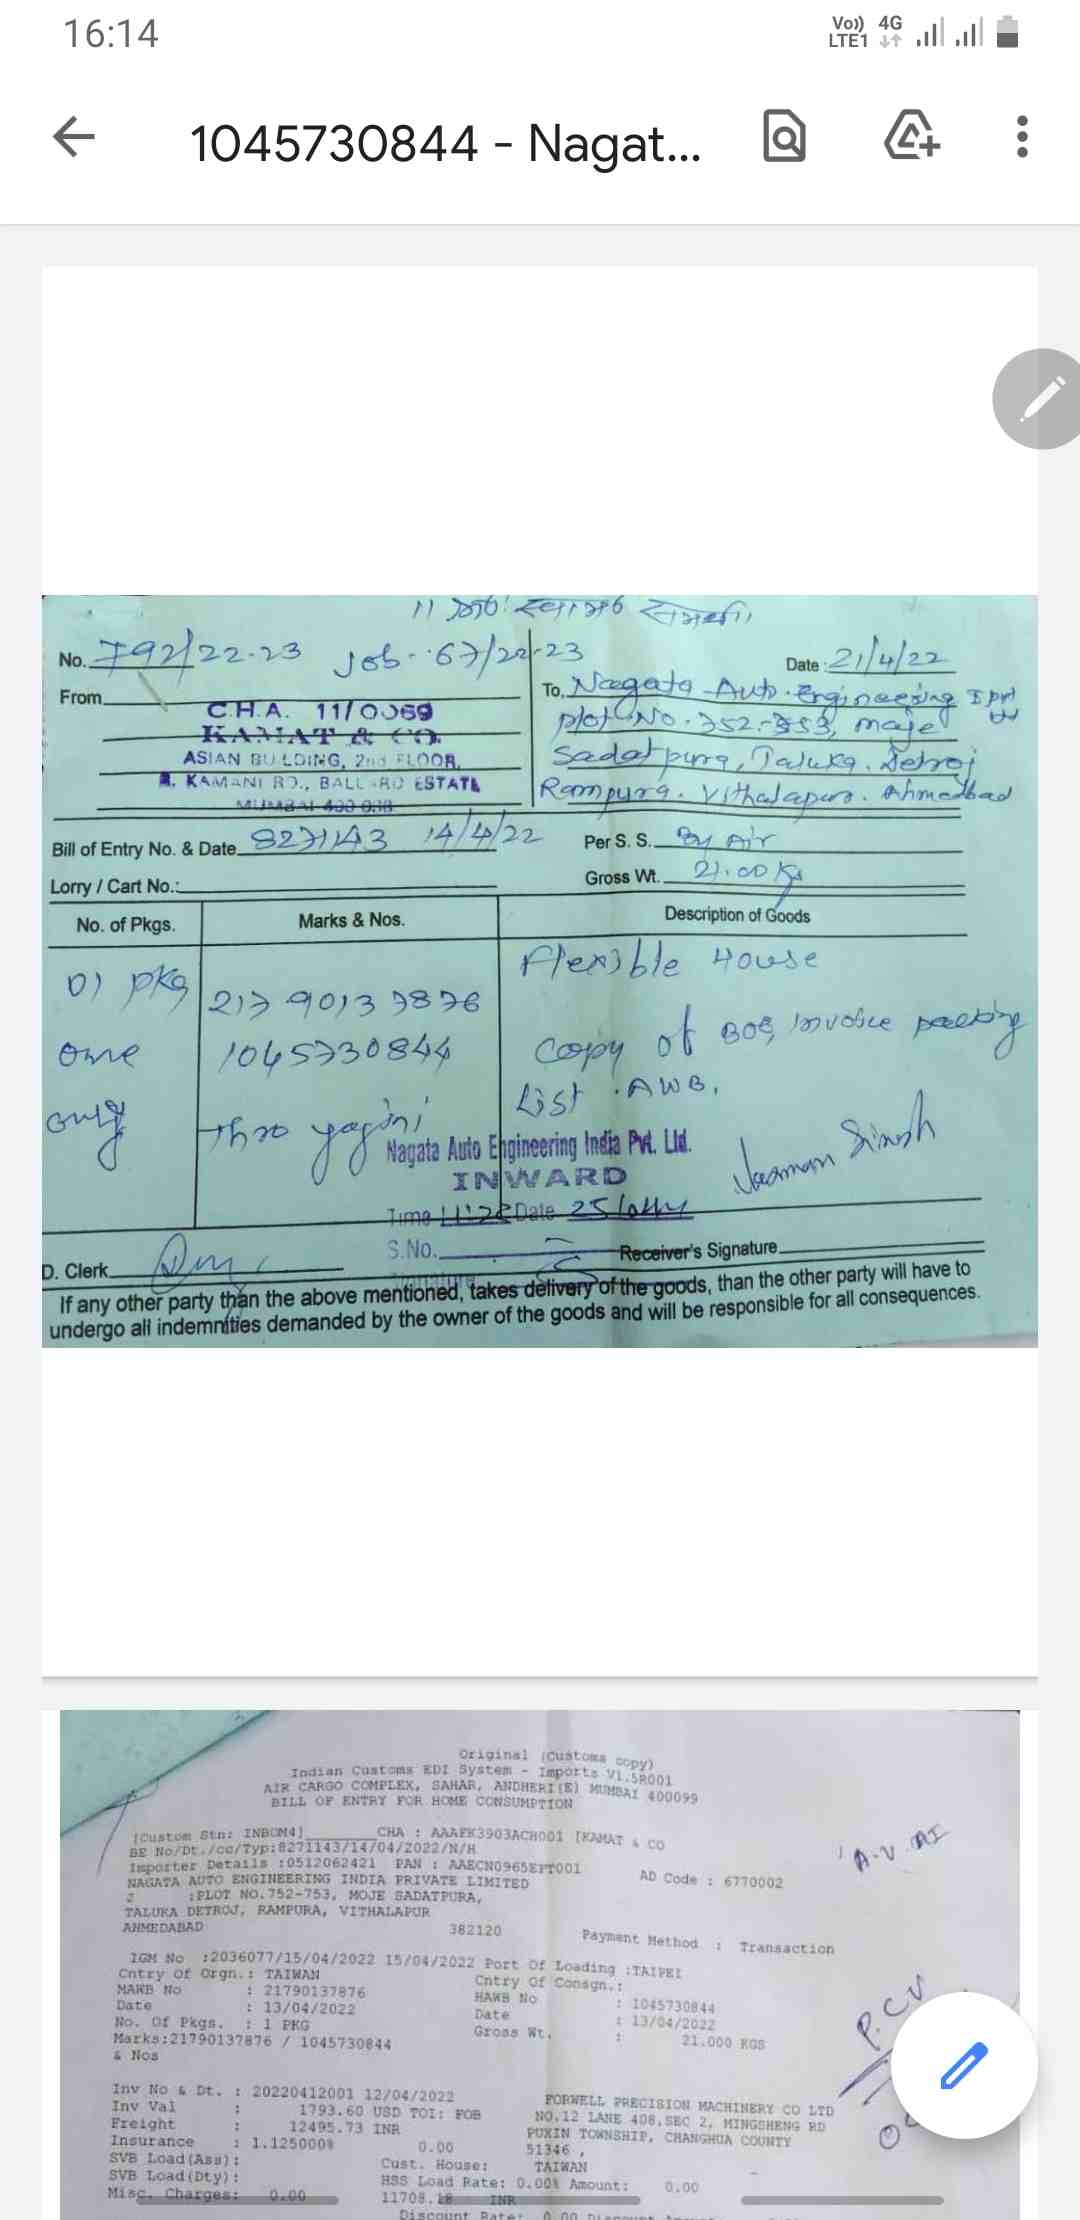 16:14
Vo)) 4G
LTE1
1045730844 - Nagat...
No. 792/22-23 Job - 67/22-23
Date : 21/4/22
From
C.H.A. 11/0069
KAMAT & CO.
ASIAN BUILDING, 2nd FLOOR,
R. KAMANI RD., BALLARD ESTATE
MUMBAI 400 038
To, Nagata Auto Engineering I Pvt Ltd
Plot No. 752-753, Moje
Sadatpura, Taluka. Detroj
Rampura. Vithalapur. Ahmedbad
Bill of Entry No. & Date 8271143 14/4/22
Per S. S. By Air
Lorry / Cart No.:
Gross Wt. 21.00 Kgs
No. of Pkgs. Marks & Nos. Description of Goods
01 pkg
one
only
217 9013 7876
1045730844
Thro yogini
Flexible House
Copy of BOE, Invoice packing
List . AWB,
Nagata Auto Engineering India Pvt. Ltd.
INWARD
Time 11:25 Date
S.No.
Signature
D. Clerk
Receiver's Signature
If any other party than the above mentioned, takes delivery of the goods, than the other party will have to
undergo all indemnities demanded by the owner of the goods and will be responsible for all consequences.
Original (Customs copy)
Indian Customs EDI System - Imports V1.5R001
AIR CARGO COMPLEX, SAHAR, ANDHERI(E) MUMBAI 400099
BILL OF ENTRY FOR HOME CONSUMPTION
[Custom Stn: INBOM4] CHA : AAAFK3903ACH001 [KAMAT & CO
BE No/Dt./cc/Typ:8271143/14/04/2022/N/H
Importer Details :0512062421 PAN : AAECN0965EFT001
AD Code : 6770002
NAGATA AUTO ENGINEERING INDIA PRIVATE LIMITED
2 :PLOT NO.752-753, MOJE SADATPURA,
TALUKA DETROJ, RAMPURA, VITHALAPUR
AHMEDABAD 382120
Payment Method : Transaction
IGM No :2036077/15/04/2022 15/04/2022 Port Of Loading :TAIPEI
Cntry Of Orgn.: TAIWAN Cntry Of Consgn.:
MAWB No : 21790137876 HAWB No : 1045730844
Date : 13/04/2022 Date : 13/04/2022
No. Of Pkgs. : 1 PKG Gross Wt. : 21.000 KGS
Marks:21790137876 / 1045730844
& Nos
Inv No & Dt. : 20220412001 12/04/2022
Inv Val : 1793.60 USD TOI: FOB
Freight : 12495.73 INR
Insurance : 1.125000% 0.00
FORWELL PRECISION MACHINERY CO LTD
NO.12 LANE 408,SEC 2, MINGSHENG RD
PUXIN TOWNSHIP, CHANGHUA COUNTY
51346 ,
TAIWAN
SVB Load(Ass): Cust. House:
SVB Load(Dty): HSS Load Rate: 0.00% Amount: 0.00
Misc. Charges: 0.00 11708.18 INR
Discount Rate: 0.00
A.V. AI
P.CV